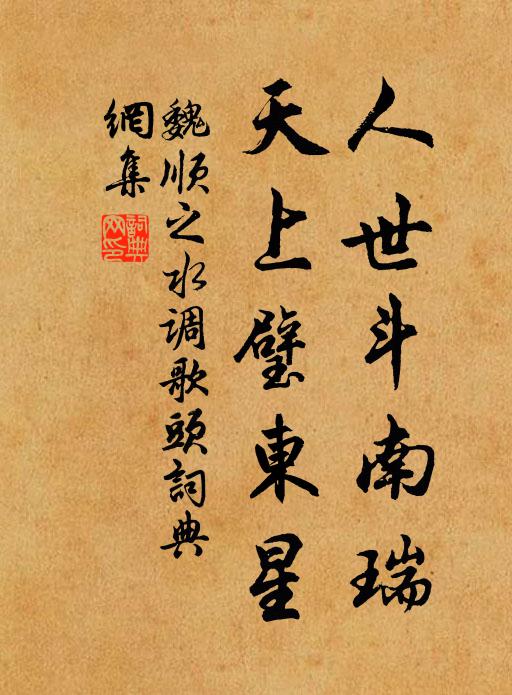 人世斗南瑞
天上璧東星
魏順之水调歌頭詞典
網集
詞典網印